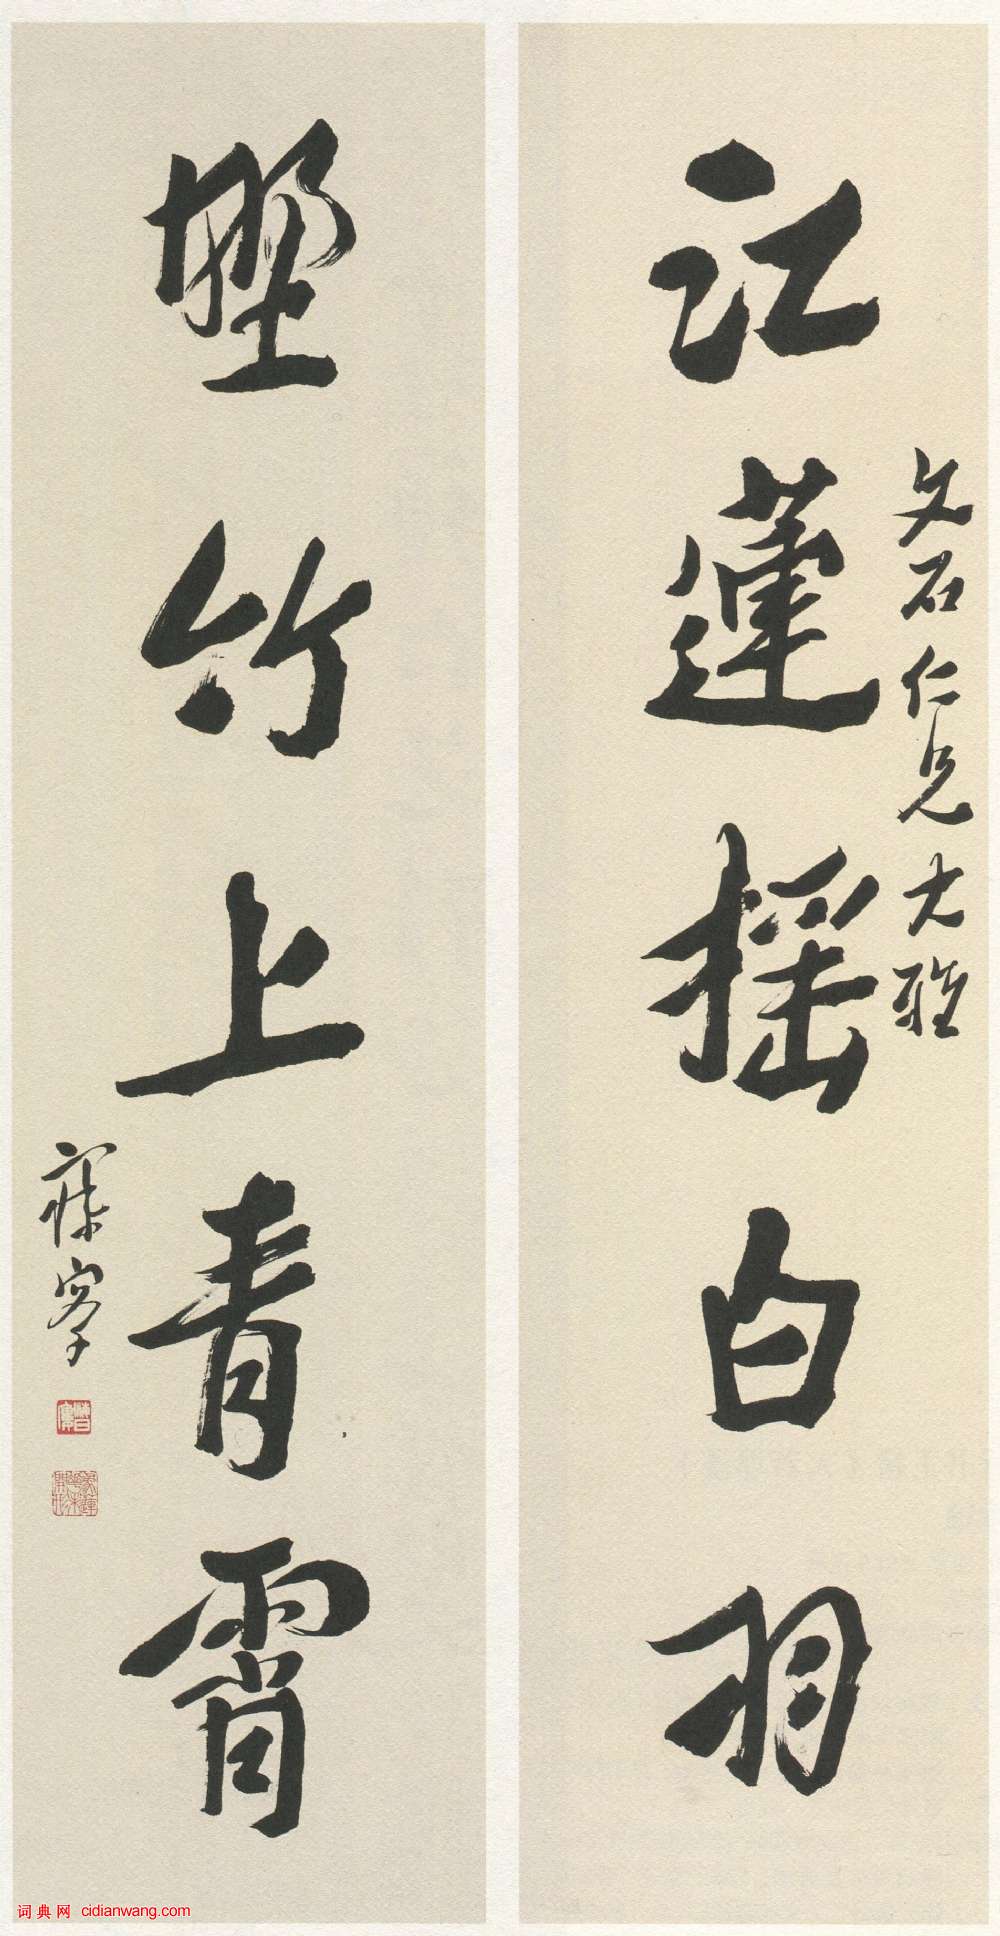 文石仁兄大雅
江蓮搖白羽
野竹上青霄
寐叟
词典网 cidianwang.com